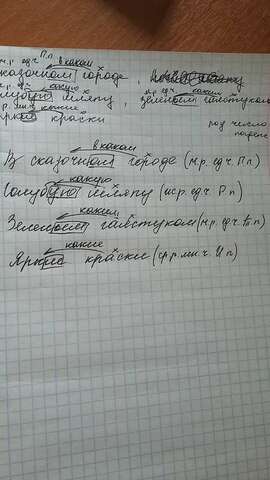 м.р. ед.ч П.п
в каком
сказочном городе,
какую
голубую шляпу,
м.р. ед.ч каким
зеленоем галстуком
какие
яркие краски
род число
падеж
в каком
В сказочном городе (м.р. ед.ч. П.п)
какую
Голубую шляпу (ж.р. ед.ч. Р.п)
каким
Зеленоем галстуком (м.р. ед.ч. Т.п)
какие
Яркие краски (ср.р. мн.ч. И.п)